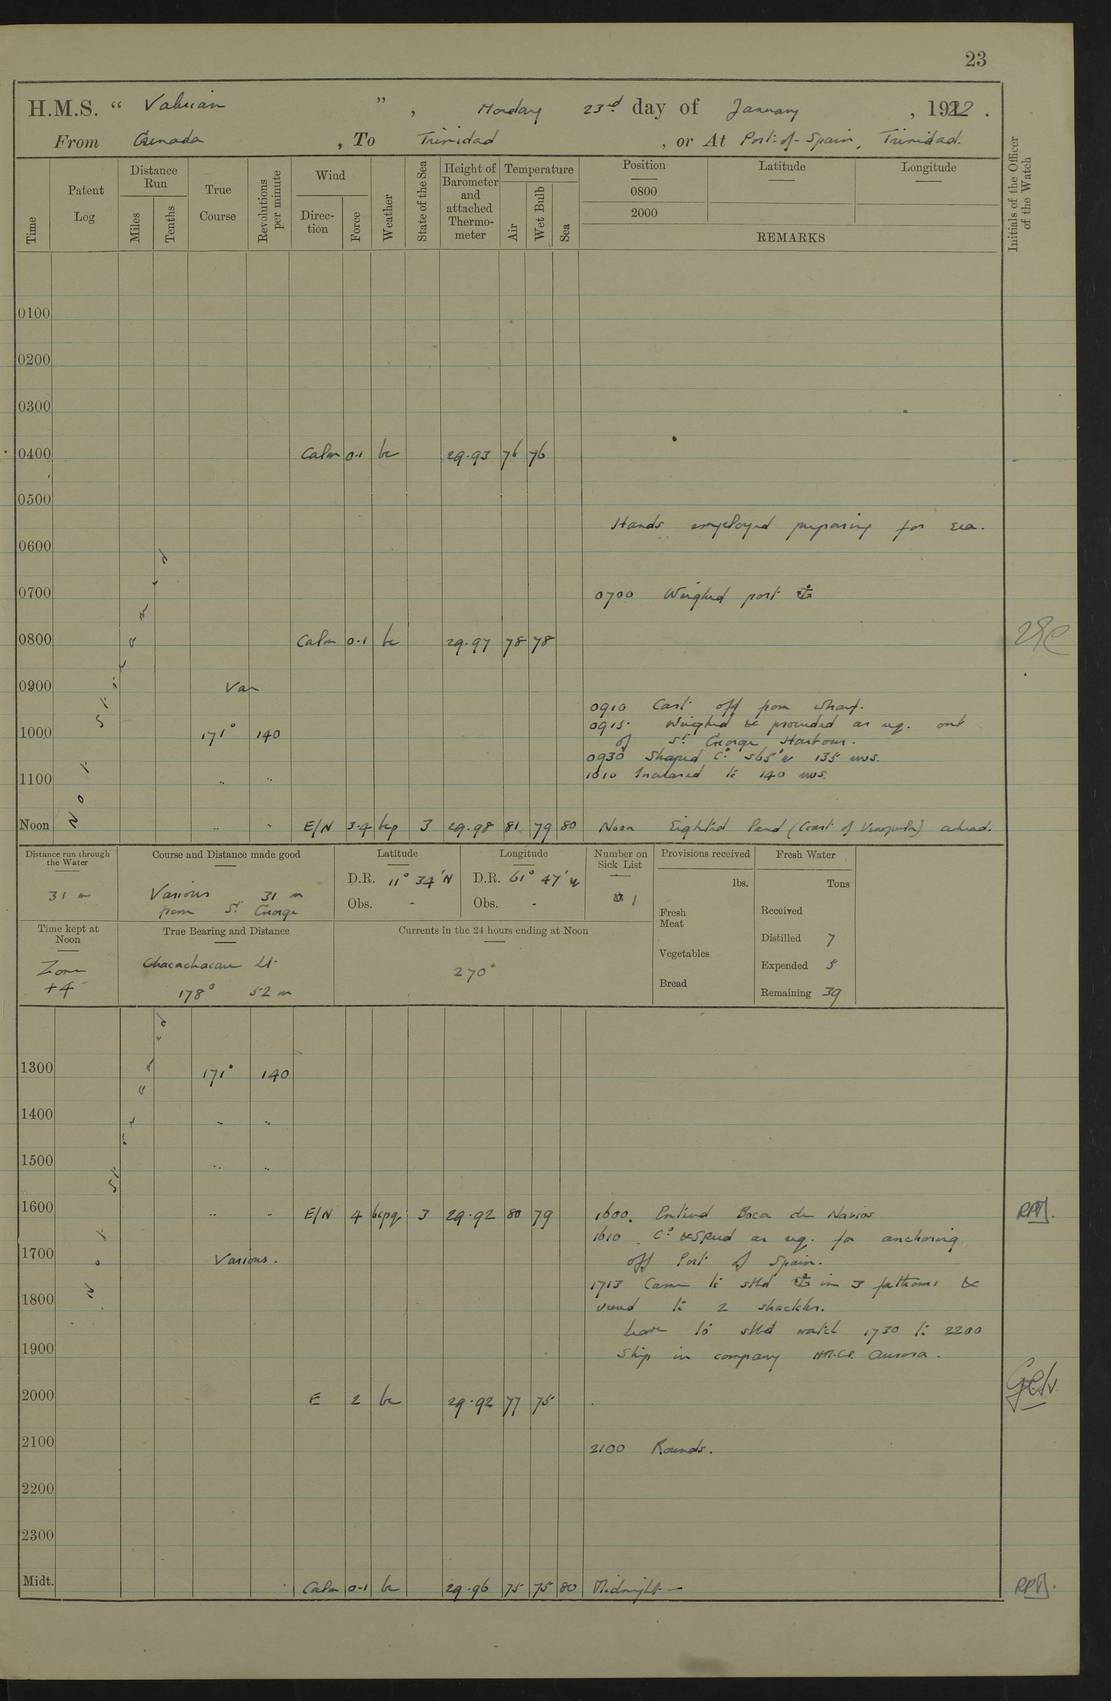 23
H.M.S. “ Valerian ” , Monday 23rd day of January , 1922 .
From Grenada , To Trinidad , or At Port-of-Spain, Trinidad.
Time
Patent Log
Distance Run
Miles
Tenths
True Course
Revolutions per minute
Wind
Direc-tion
Force
Weather
State of the Sea
Height of Barometer and attached Thermo-meter
Temperature
Air
Wet Bulb
Sea
Position
0800
2000
Latitude
Longitude
REMARKS
Initials of the Officer of the Watch
0100
0200
0300
0400 Calm 0-1 bc 29.93 76 76
0500
Hands employed preparing for sea.
0600
0700 0700 Weighed port ⚓
0800 Calm 0-1 bc 29.97 78 78
0900 Var
0910 Cast off from wharf.
0915 Weighed & proceeded as req. out
of St. George Harbour.
1000 171° 140
0930 Shaped Co
135 revs.
1010 Increased to 140 revs.
1100 " "
Not Streamed
Noon " " E/N 3-4 bcp 3 29.98 81 79 80 Noon Sighted land (Coast of Venezuela) ahead.
Distance run through the Water
31 m
Course and Distance made good
Various 31 m
from St. George
Latitude
D.R. 11° 34' N
Obs. -
Longitude
D.R. 61° 47' W
Obs. -
Number on Sick List
1
Provisions received
lbs.
Fresh Meat
Vegetables
Bread
Fresh Water
Tons
Received
Distilled 7
Expended 5
Remaining 39
Time kept at Noon
Zone
+4
True Bearing and Distance
Chacachacare Lt.
178° 52 m
Currents in the 24 hours ending at Noon
270°
1300 171° 140
1400 " "
1500 " "
1600 " " E/N 4 bcpq 3 29.92 80 79 1600. Entered Boca de Navios
RPM.
1610 Co & Speed as req. for anchoring
off Port of Spain.
1700 Various.
1713 Came to stbd ⚓ in 5 fathoms &
veered to 2 shackles.
1800
Leave to stbd watch 1730 to 2200
1900
Ship in company H.M.C.S. Aurora.
Not Streamed
2000 E 2 bc 29.92 77 75
2100 2100 Rounds.
2200
2300
Midt. Calm 0-1 bc 29.96 75 75 80 Midnight —
RPM.